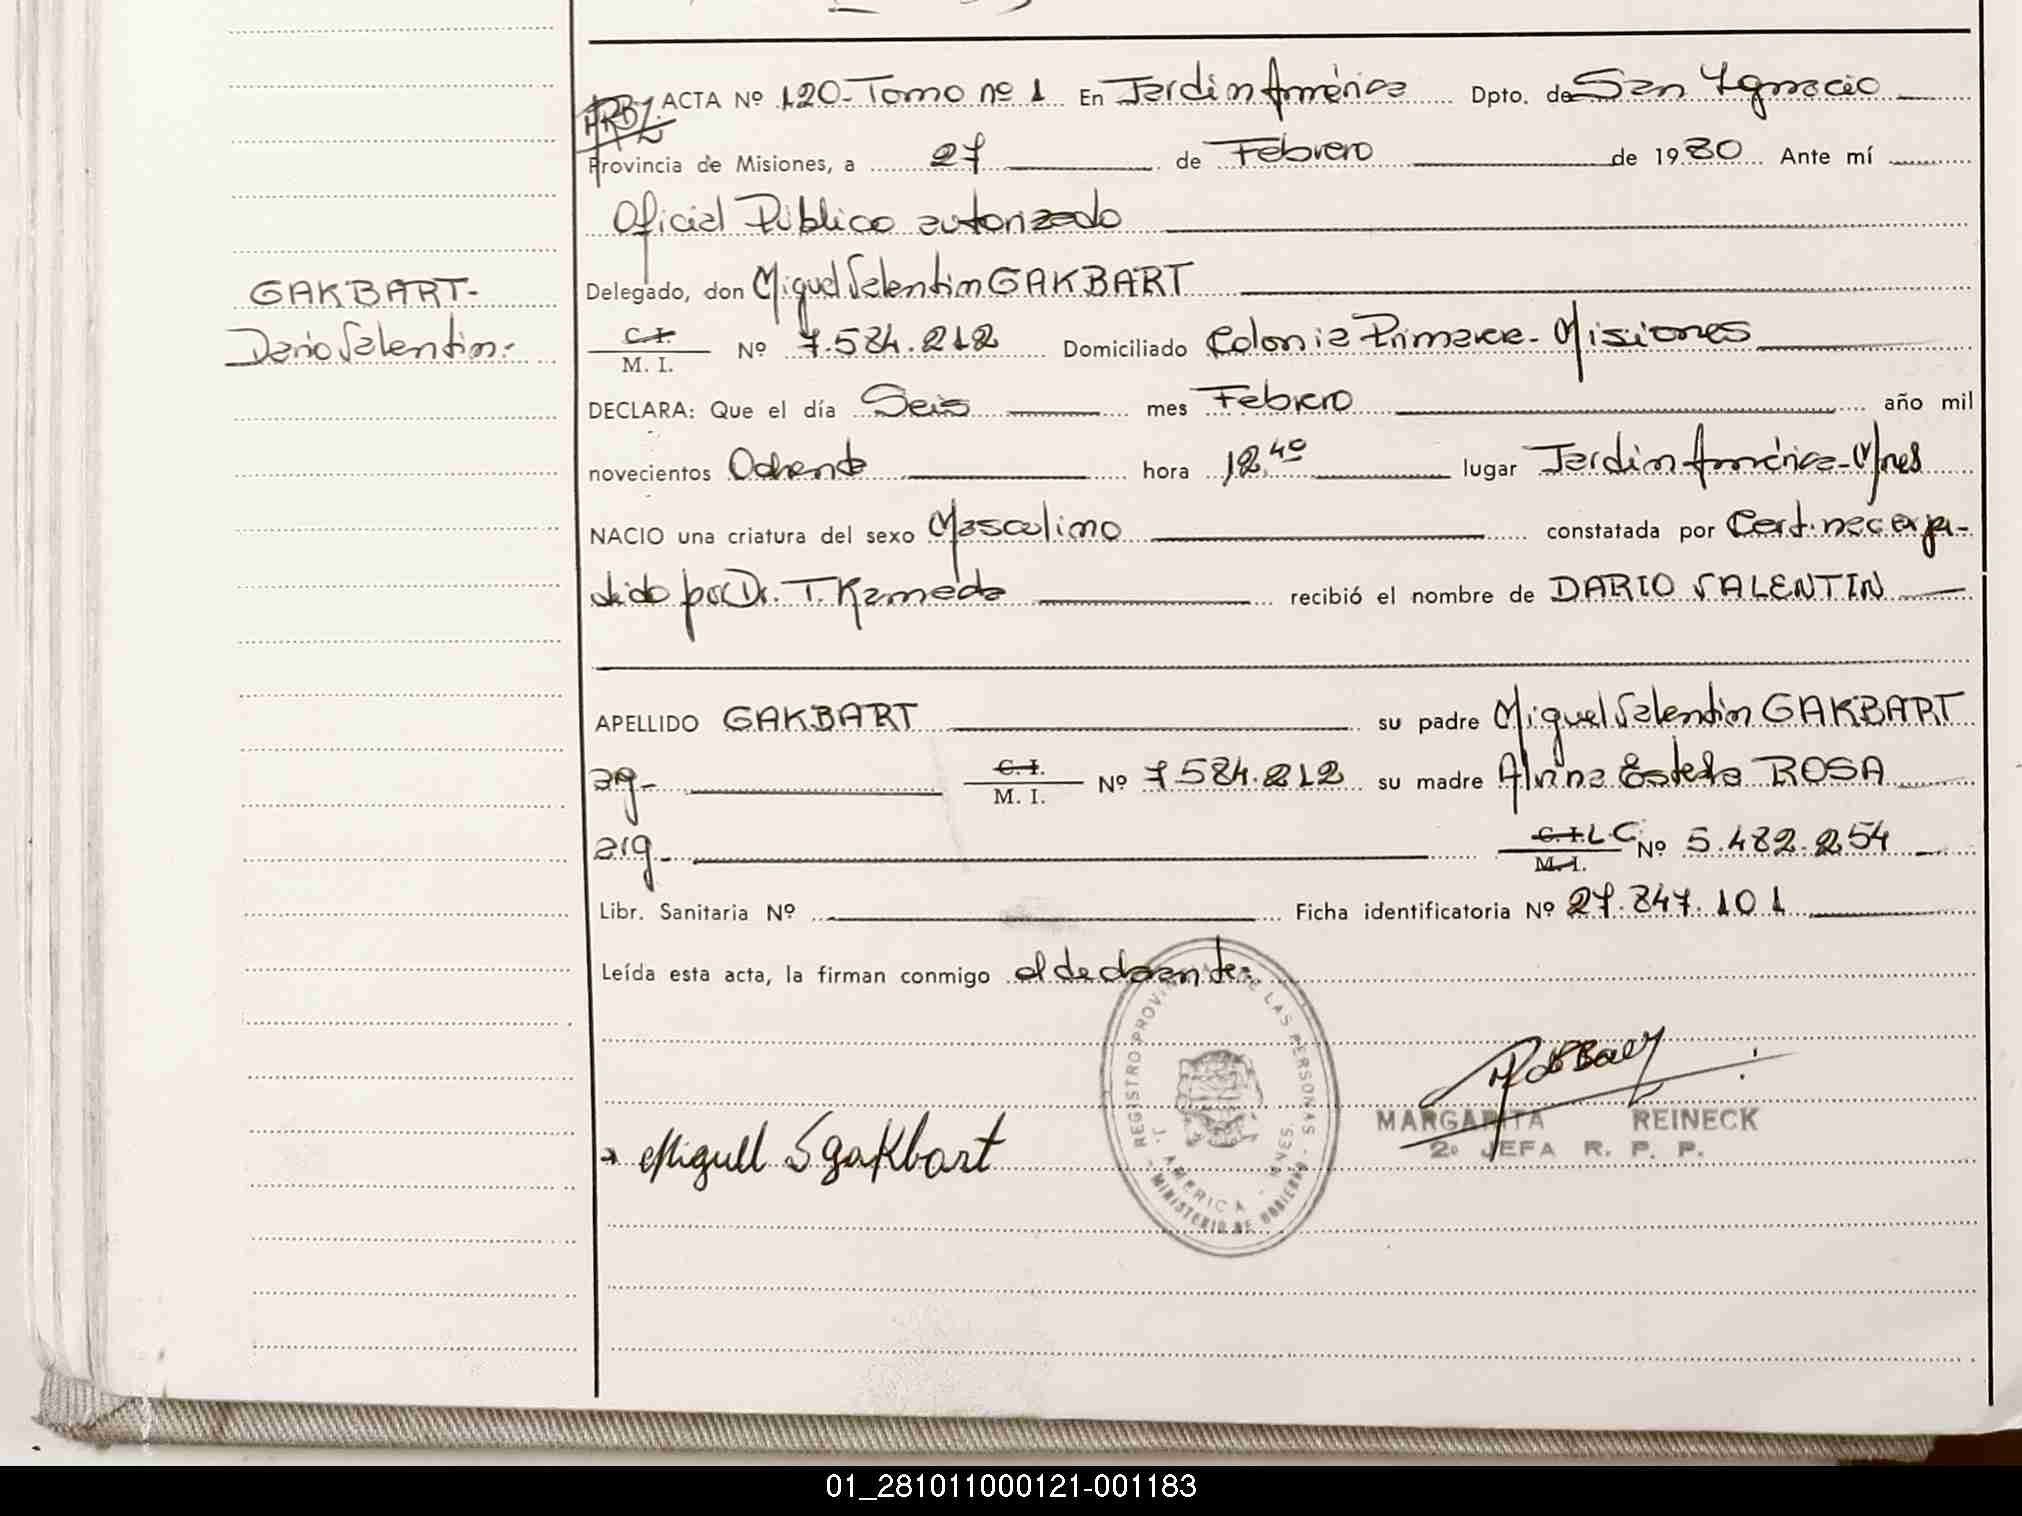 ACTA Nº 120 - Tomo nº 1 En Jardin América Dpto. de San Ygnacio
Provincia de Misiones, a 27 de Febrero de 1980 Ante mí
Oficial Público autorizado
Delegado, don Miguel Valentin GAKBART
GAKBART-
Dario Valentin.-
C. I.
M. I. Nº 7.584.212 Domiciliado Colonia Primavera - Misiones
DECLARA: Que el día Seis mes Febrero año mil
novecientos Ochenta hora 12,40 lugar Jardin América - Mnes
NACIO una criatura del sexo Masculino constatada por Cert. nac. expe-
dido por Dr. T. Kameda recibió el nombre de DARIO VALENTIN
APELLIDO GAKBART su padre Miguel Valentin GAKBART
arg- C. I.
M. I. Nº 7.584.212 su madre Alvina Estela ROSA
arg- C. I. L.C.
M. I. Nº 5.482.254
Libr. Sanitaria Nº Ficha identificatoria Nº 27.847.101
Leída esta acta, la firman conmigo el declarante.-
REGISTRO PROVINCIAL DE LAS PERSONAS
J. AMERICA - MNES.
MINISTERIO DE GOBIERNO
MARGARITA REINECK
2º JEFA R. P. P.
Miguel S gakbart
01_281011000121-001183